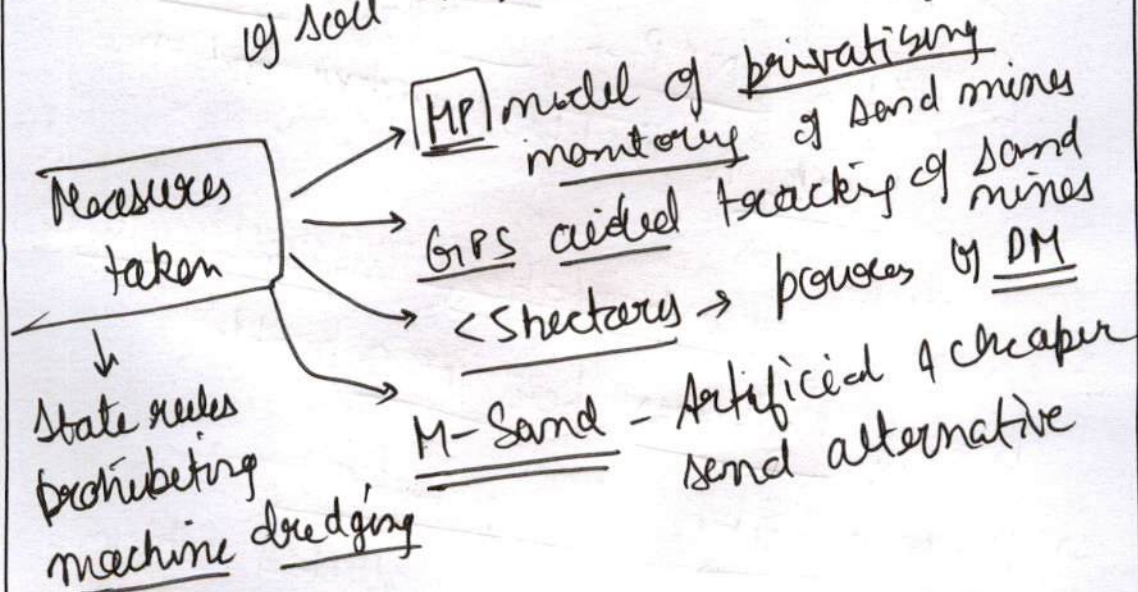 of soil
MP model of privatising
monitoring of sand mines
GPS aided tracking of sand
mines
<5hectares → powers of DM
M-Sand - Artificial & cheaper
sand alternative
Measures
taken
State rules
prohibiting
machine dredging